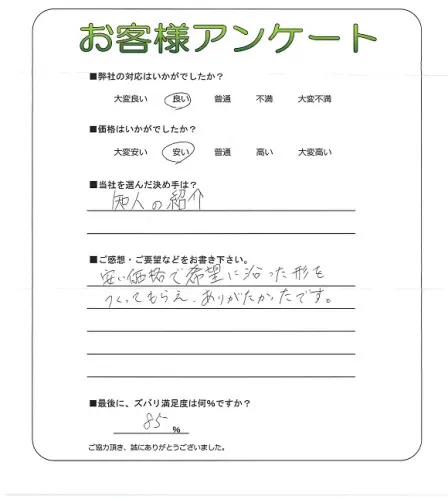 お客様アンケート
■弊社の対応はいかがでしたか？
大変良い 良い 普通 不満 大変不満
■価格はいかがでしたか？
大変安い 安い 普通 高い 大変高い
■当社を選んだ決め手は？
知人の紹介
■ご感想・ご要望などをお書き下さい。
安い価格で希望に沿った形を
つくってもらえ、ありがたかったです。
■最後に、ズバリ満足度は何％ですか？
85 ％
ご協力頂き、誠にありがとうございました。